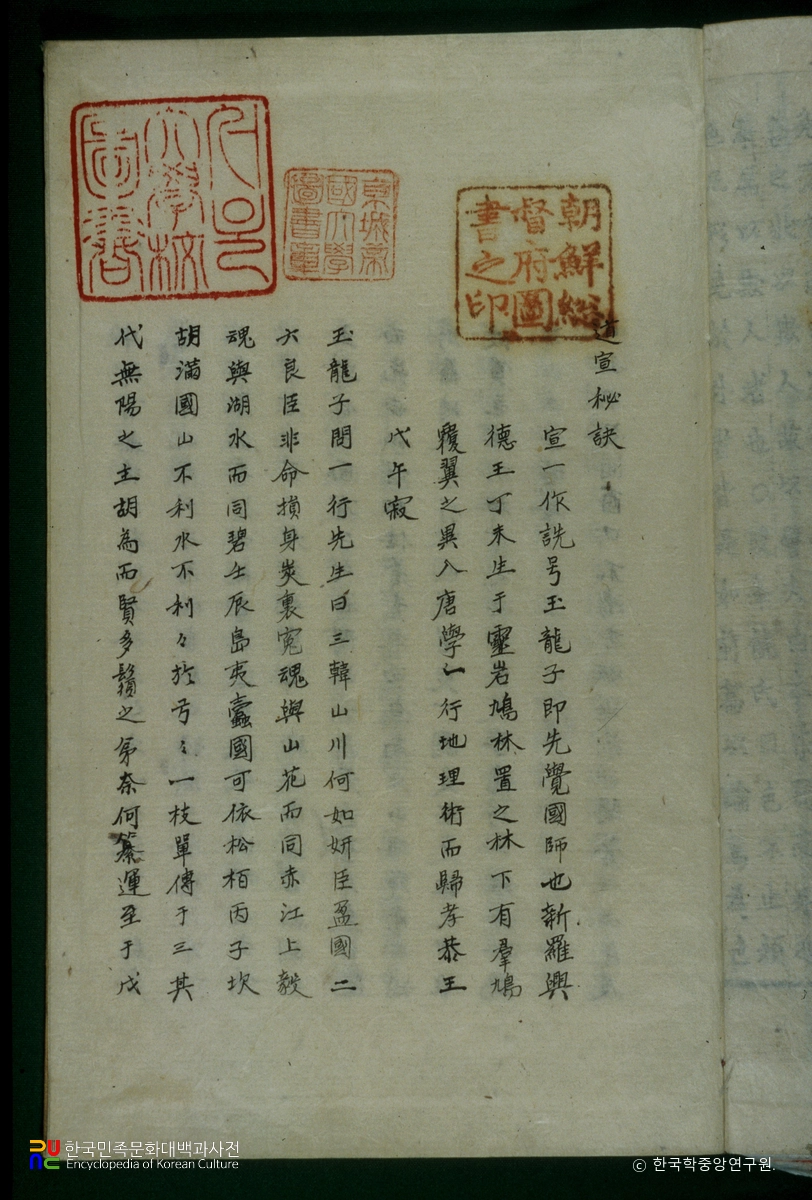 朝鮮総
督府圖
書之印
京城帝
國大學
圖書章
道宣秘訣
宣一作詵号玉龍子即先覺國師也新羅興
德王丁未生于靈岩鳩林置之林下有羣鳩
覆翼之異入唐學一行地理術而歸孝恭王
戊午寂
玉龍子問一行先生曰三韓山川何如姸臣盈國二
六良臣非命損身炎裏寃魂與山花而同赤江上毅
魂與湖水而同碧壬辰島夷蠹國可依松栢丙子坎
胡滿國山不利水不利々於弓々一枝單傳于三其
代無陽之主胡為而賢多賴之弟奈何纂運至于戊
한국민족문화대백과사전
Encyclopedia of Korean Culture
ⓒ 한국학중앙연구원.